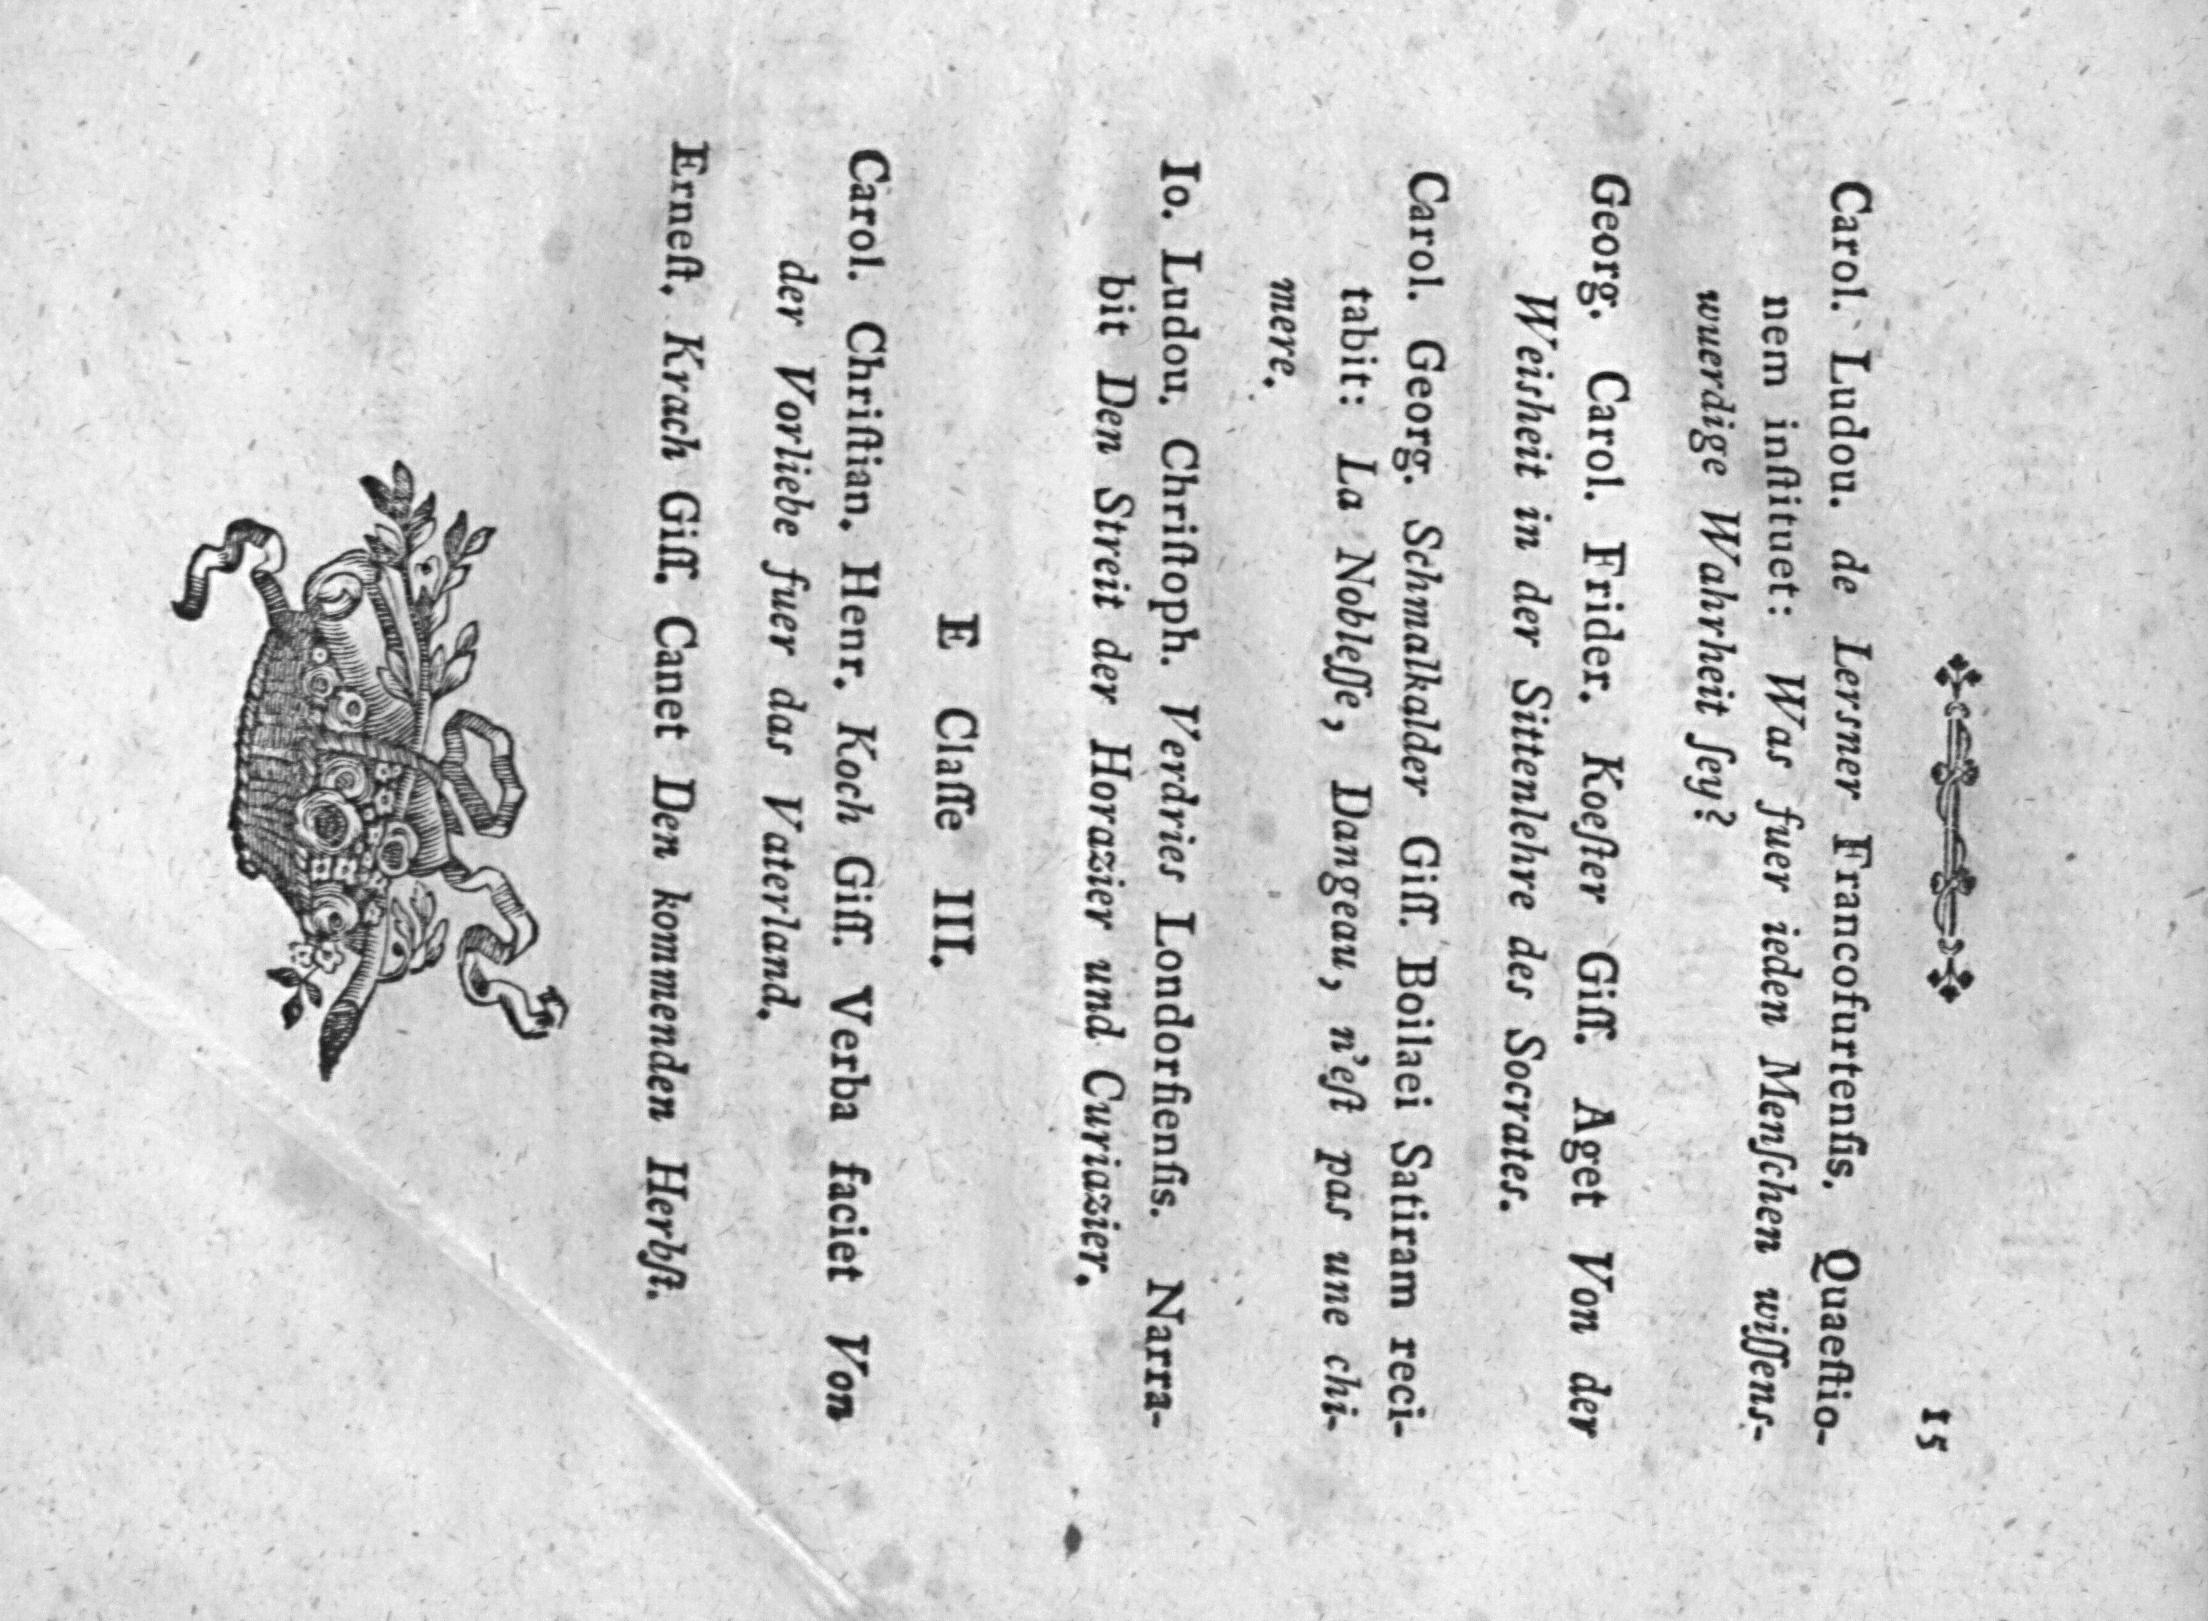 15
Carol. Ludou. de Lersner Francofurtenſis. Quaeſtio-
nem inſtituet: Was fuer ieden Menſchen wiſſens-
wuerdige Wahrheit ſey?
Georg. Carol. Frider. Koeſter Giſſ. Aget Von der
Weisheit in der Sittenlehre des Socrates.
Carol. Georg. Schmalkalder Giſſ. Boilaei Satiram reci-
tabit: La Nobleſſe, Dangeau, n'eſt pas une chi-
mere.
Io. Ludou. Chriſtoph. Verdries Londorfienſis. Narra-
bit Den Streit der Horazier und Curiazier.
E Claſſe III.
Carol. Chriſtian. Henr. Koch Giſſ. Verba faciet Von
der Vorliebe fuer das Vaterland.
Erneſt. Krach Giſſ. Canet Den kommenden Herbſt.